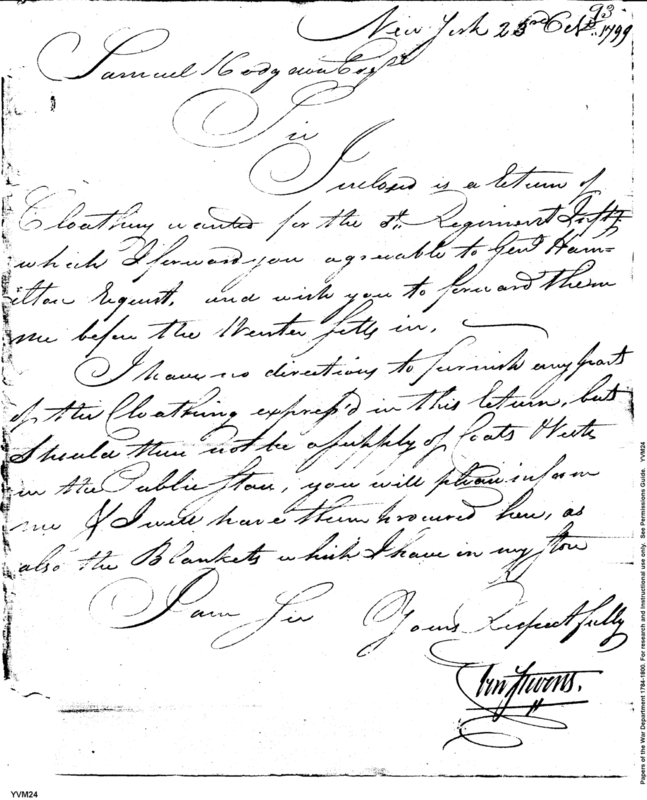 93
New York 23rd Octr. 1799
Samuel Hodgdon Esqr
Sir
Inclosed is a Return of
Cloathing wanted for the Regiment Infty
which I forward you agreeable to Genl Ham=
ilton Request, and wish you to forward them
me before the Winter setts in.
I have no directions to furnish any part
of the Cloathing express'd in this Return, but
Should there not be a supply of Coats Vests
in the Public Store, you will please inform
me & I will have them procured here, as
also the Blankets which I have in my Store
I am Sir Yours Respectfully
Ebn Stevens.
Papers of the War Department 1784-1800. For research and instructional use only. See Permissions Guide. YVM24
YVM24